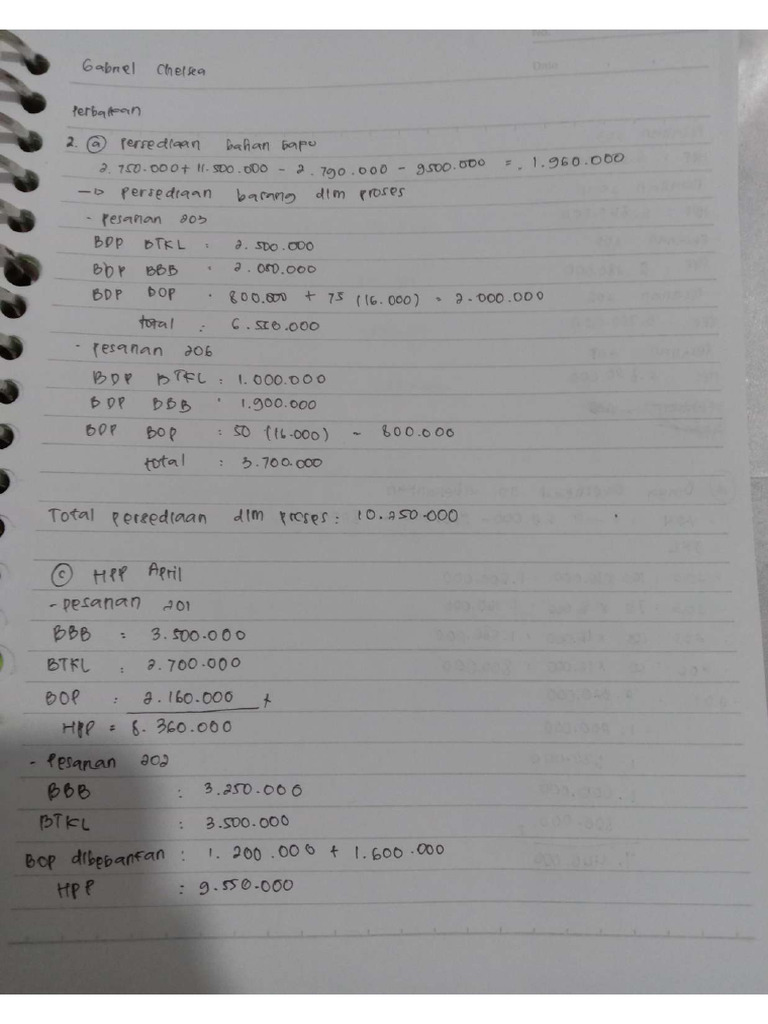 Gabriel Chelsea
Perbaikan
2. (a) Persediaan bahan baku
2.750.000 + 11.500.000 - 2.790.000 - 9500.000 = 1.960.000
→ Persediaan barang dlm proses
- Pesanan 203
BDP BTKL : 2.500.000
BDP BBB : 2.050.000
BDP BOP : 800.000 + 75 (16.000) = 2.000.000
total : 6.550.000
- Pesanan 206
BDP BTKL : 1.000.000
BDP BBB : 1.900.000
BDP BOP : 50 (16.000) - 800.000
total : 3.700.000
Total persediaan dlm proses : 10.250.000
(c) HPP April
- Pesanan 201
BBB : 3.500.000
BTKL : 2.700.000
BOP : 2.160.000 +
HPP = 8.360.000
- Pesanan 202
BBB : 3.250.000
BTKL : 3.500.000
BOP dibebankan : 1.200.000 + 1.600.000
HPP : 9.550.000